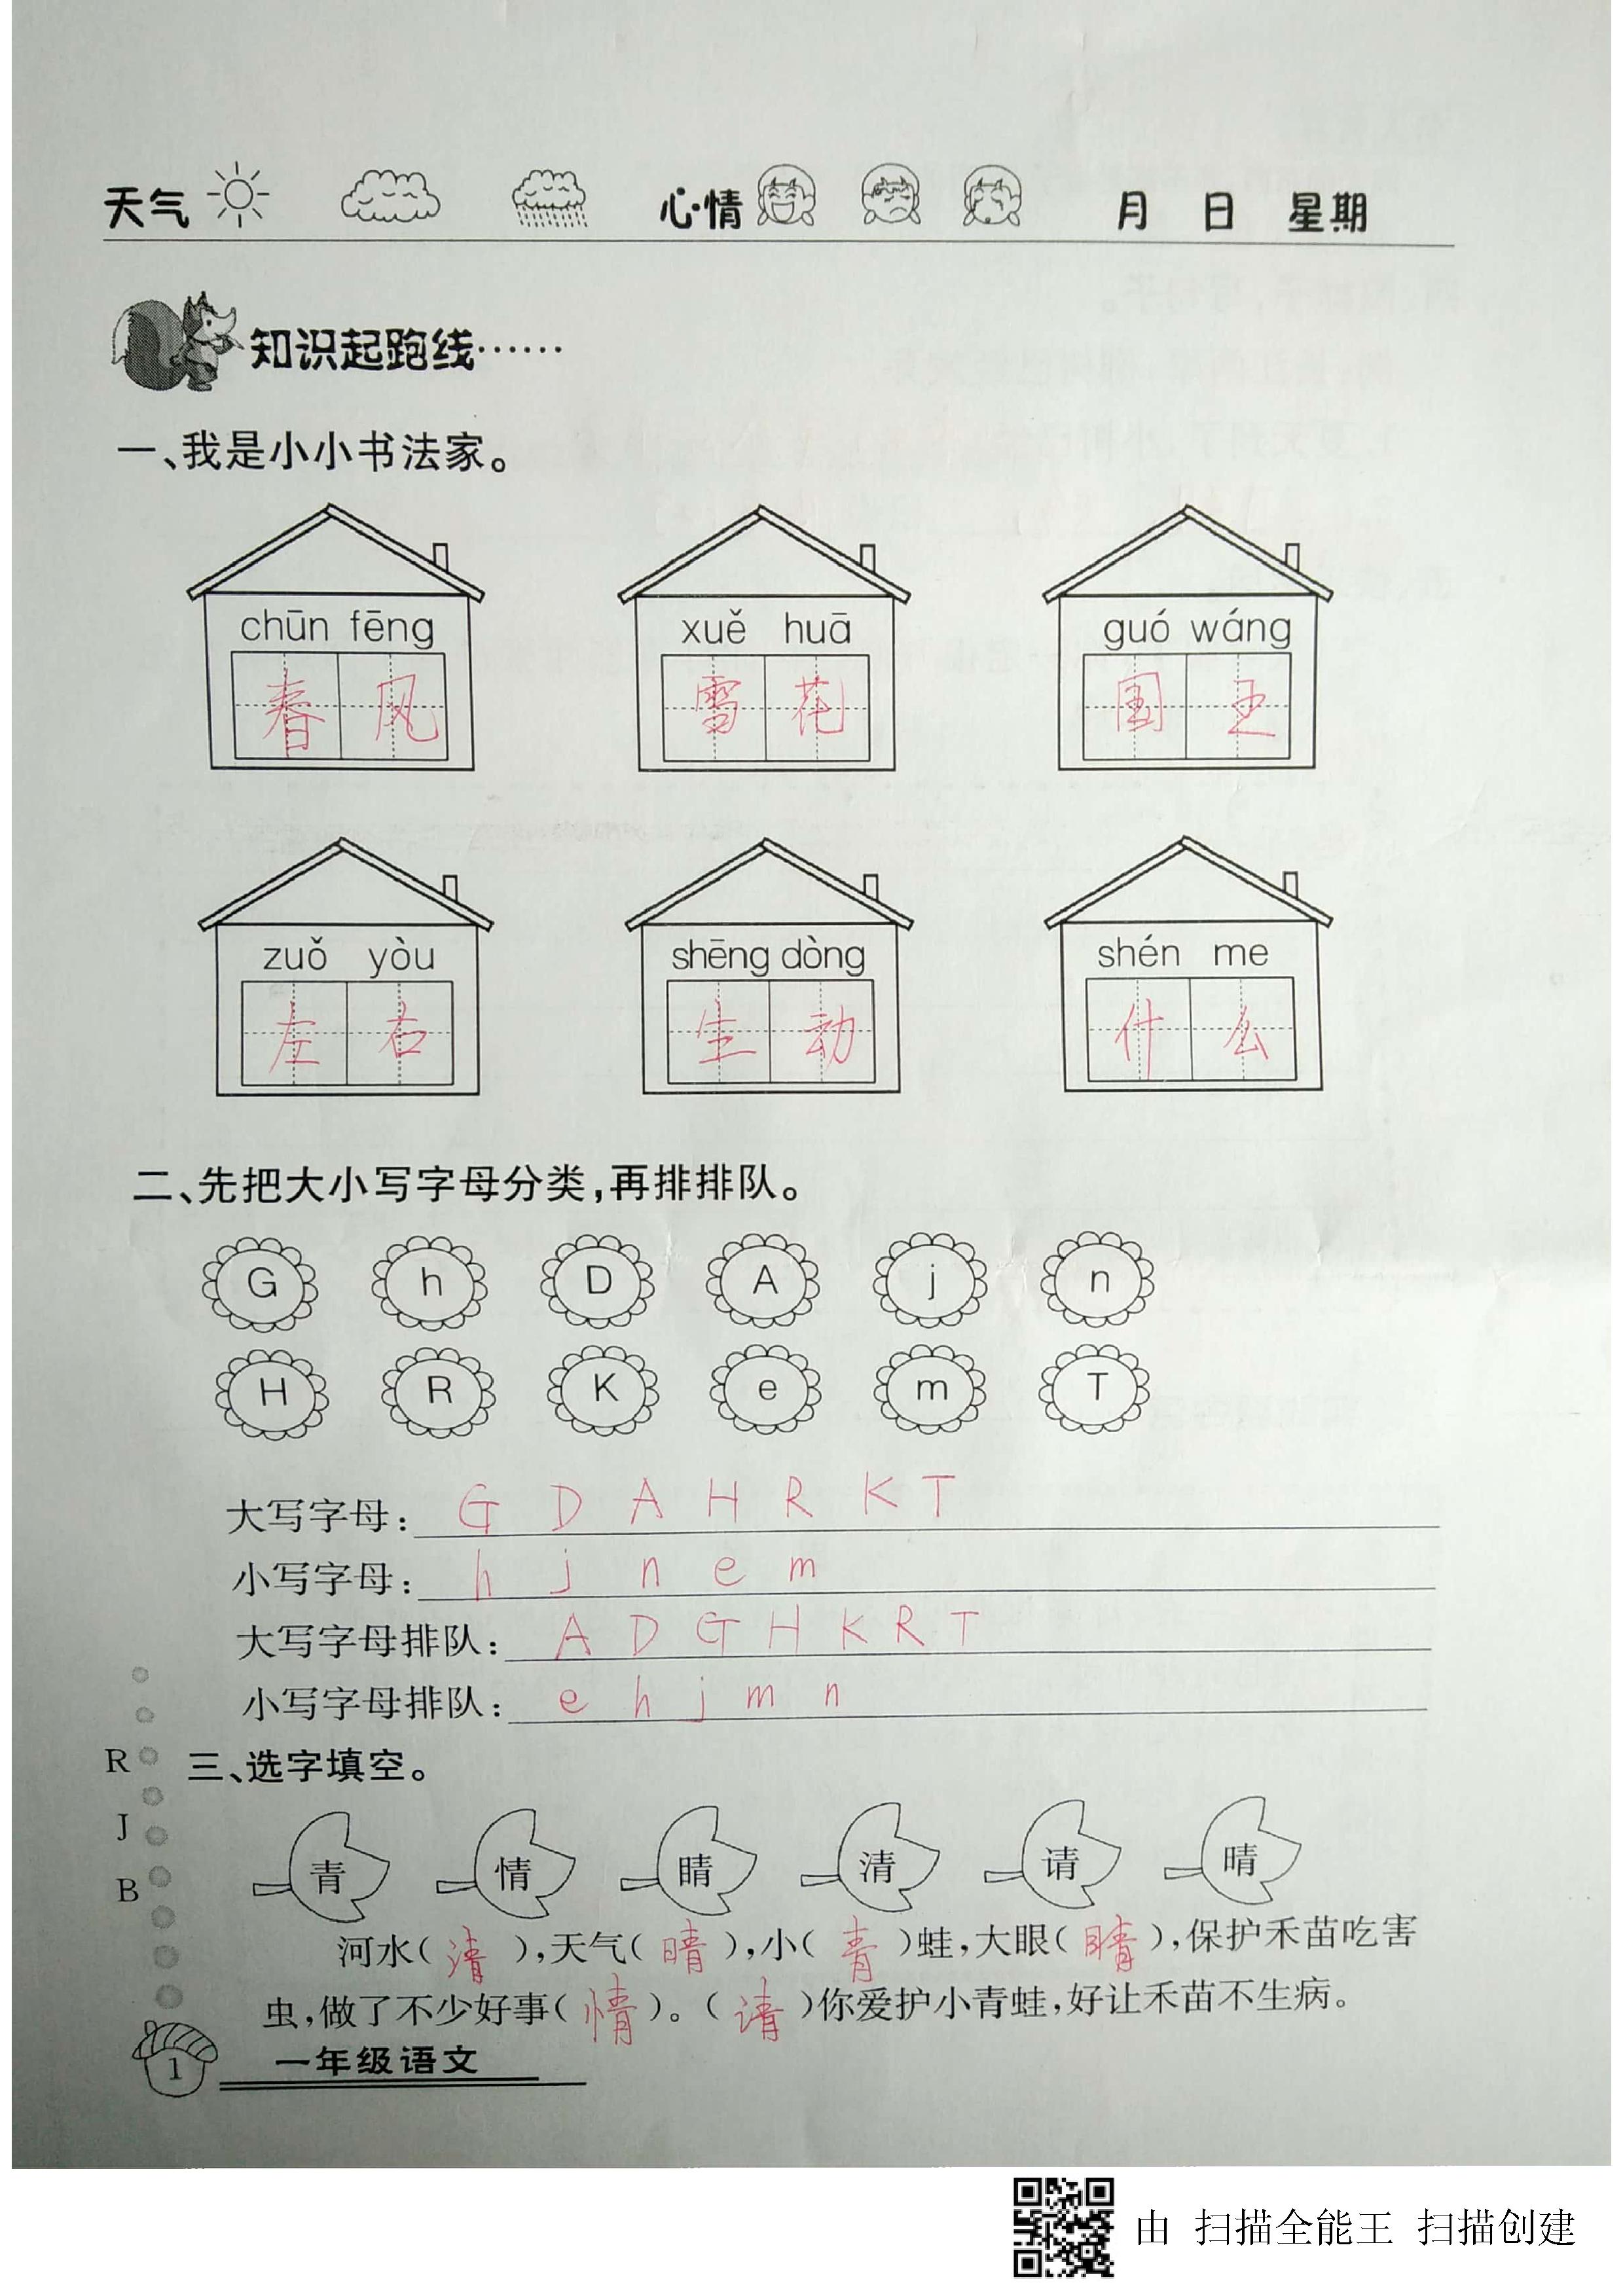 天气 心情 月 日 星期
知识起跑线……
一、我是小小书法家。
chūn fēng xuě huā guó wáng
春风 雪花 国王
zuǒ yòu shēng dòng shén me
左右 生动 什么
二、先把大小写字母分类,再排排队。
G h D A j n
H R K e m T
大写字母: G D A H R K T
小写字母: h j n e m
大写字母排队: A D G H K R T
小写字母排队: e h j m n
三、选字填空。
青 情 睛 清 请 晴
河水(清),天气(晴),小(青)蛙,大眼(睛),保护禾苗吃害
虫,做了不少好事(情)。(请)你爱护小青蛙,好让禾苗不生病。
R
J
B
1 一年级语文
由 扫描全能王 扫描创建